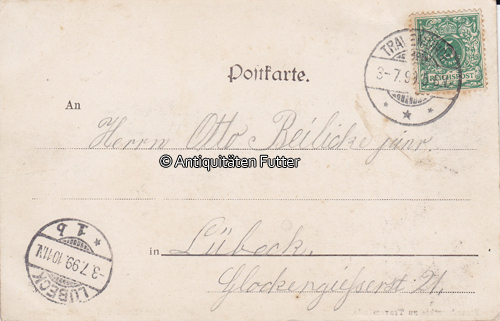 Postkarte.
REICHSPOST
3-7.99
An
Herrn Otto Beilicke junr.
© Antiquitäten Futter
in Lübeck.
Glockengießerstr 21.
LÜBECK
-3.7.99.10-11.V.
* 1 b